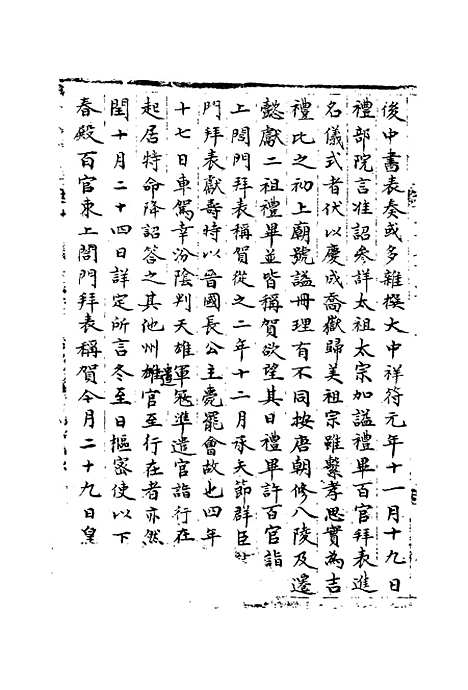 後中書表奏或多雜撰大中祥符元年十一月十九日
禮部院言准詔參詳太祖太宗加謚禮畢百官拜表進
名儀式者伏以慶成喬嶽歸美祖宗雖繫孝思實為吉
禮比之初上廟號謚冊理有不同按唐朝修八陵及還
懿獻二祖禮畢並皆稱賀欲望其日禮畢許百官詣
上閤門拜表稱賀從之二年十二月承天節群臣
門拜表獻壽時以晉國長公主薨罷會故也四年
十七日車駕幸汾陰判天雄軍冦準遣官詣行在
起居特命降詔答之其他州雄遣官至行在者亦然
閏十月二十四日詳定所言冬至日樞密使以下
春殿百官東上閤門拜表稱賀今月二十九日皇